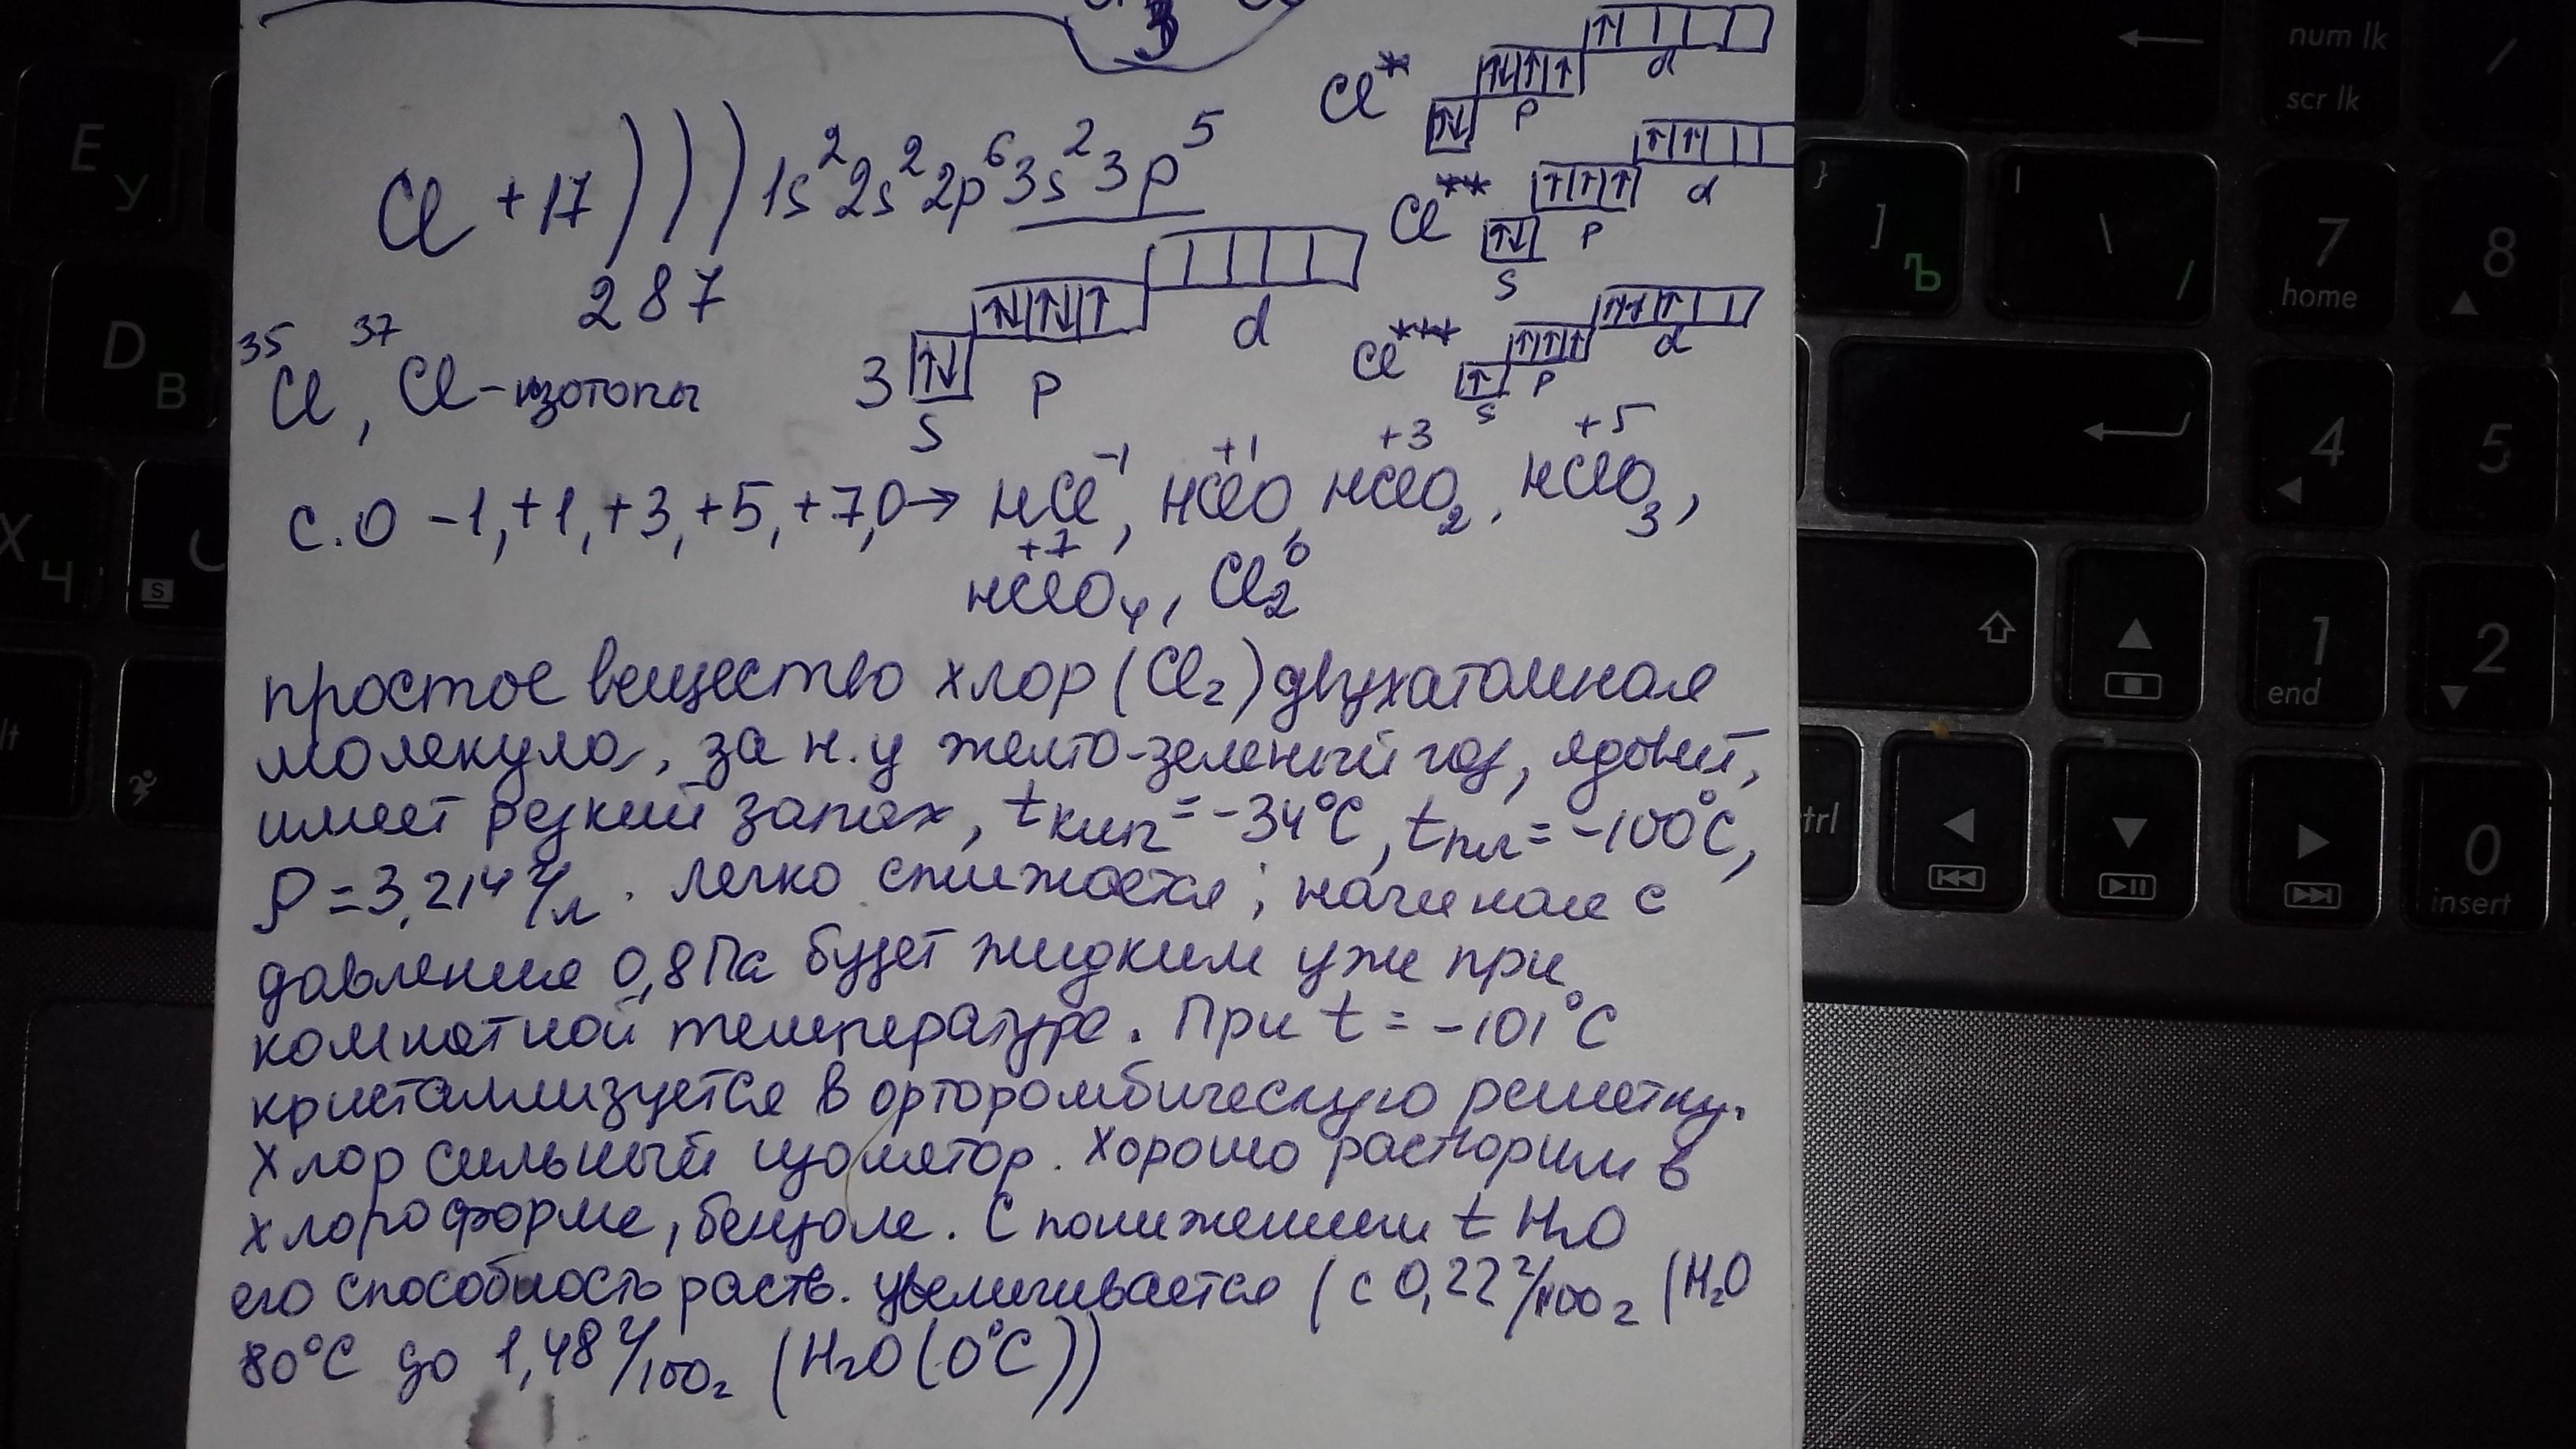 3
Cl* ↑↓ ↑↓ ↑ ↑ p ↑ d
Cl +17 ) ) ) 1s² 2s² 2p⁶ 3s² 3p⁵
2 8 7
Cl** ↑↓ s ↑ ↑ ↑ p ↑ ↑ d
3 ↑↓ s ↑↓ ↑↓ ↑ p d
Cl*** ↑ s ↑ ↑ ↑ p ↑ ↑ ↑ d
³⁵Cl, ³⁷Cl - изотопы
-1 +1 +3 +5
с.о -1, +1, +3, +5, +7, 0 → HCl, HClO, HClO₂, HClO₃,
+7 0
HClO₄, Cl₂
простое вещество хлор (Cl₂) двухатомная
молекула, за н.у желто-зеленый газ, ядовит,
имеет резкий запах, tкип = -34°C, tпл = -100°C,
ρ = 3,214 г/л. легко сжижается; начиная с
давления 0,8 Па будет жидким уже при
комнатной температуре. При t = -101°C
кристаллизуется в орторомбическую решетку.
Хлор сильный изолятор. Хорошо растворим в
хлороформе, бензоле. С понижением t H₂O
его способность раств. увеличивается (с 0,22 г/100г (H₂O
80°C до 1,48 г/100г (H₂O (0°C))
E
У
D
В
X
Ч
S
lt
←
num lk
scr lk
/
}
]
Ъ
|
\
/
7
home
8
▲
4
◀
5
⇧
▲
1
end
2
▼
trl
◀
▼
▶
0
insert